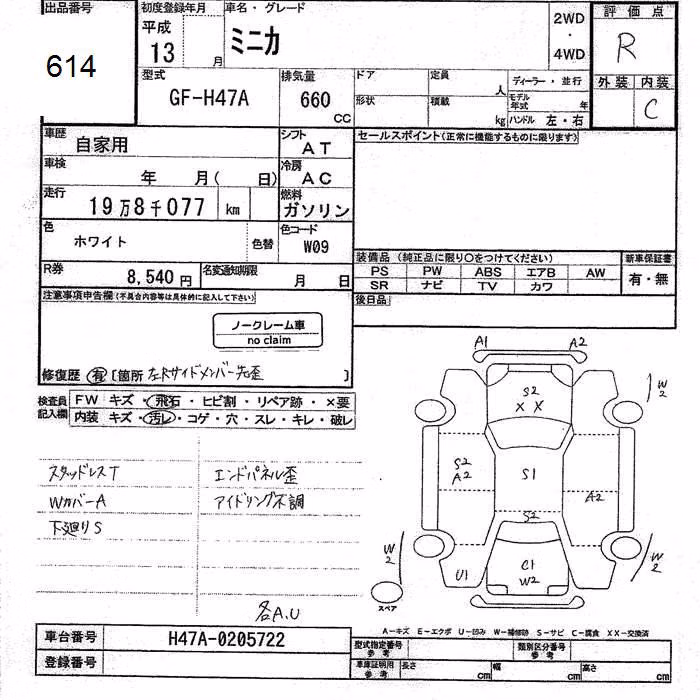 出品番号 初度登録年月 車名・グレード 評価点
614 平成 13 月 ミニカ 2WD・4WD R
型式 排気量 ドア 定員 人 ディーラー・並行 外装 内装
GF-H47A 660 CC 形状 積載 kg モデル年式 年 ハンドル 左・右 C
車歴 自家用 シフト AT セールスポイント(正常に機能するものに限ります)
車検 年 月( 日) 冷房 AC
走行 19万8千077 km 燃料 ガソリン
色 ホワイト 色替 色コード W09
装備品 (純正品に限り〇をつけてください) 新車保証書
PS PW ABS エアB AW 有・無
SR ナビ TV カワ
R券 8,540円 名変通知期限 月 日
後日品
注意事項申告欄(不具合内容等は具体的に記入して下さい)
ノークレーム車
no claim
修復歴 有 [箇所 左Rサイドメンバー先歪 ]
検査員記入欄 FW キズ・飛石・ヒビ割・リペア跡・×要
内装 キズ・汚レ・コゲ・穴・スレ・キレ・破レ
スタッドレスT エンドパネル歪
WカバーA アイドリング不調
下廻りS
各A.U
A1 A2
S2
X X
W2
S2
A2
S1
A2
S2
W2
U1
C1
W2
W2
スペア
A-キズ E-エクボ U-凹み W-補修跡 S-サビ C-腐食 XX-交換済
車台番号 H47A-0205722 型式指定番号 参考 類別区分番号 参考
登録番号 車庫証明用 参考 長さ cm 幅 cm 高さ cm